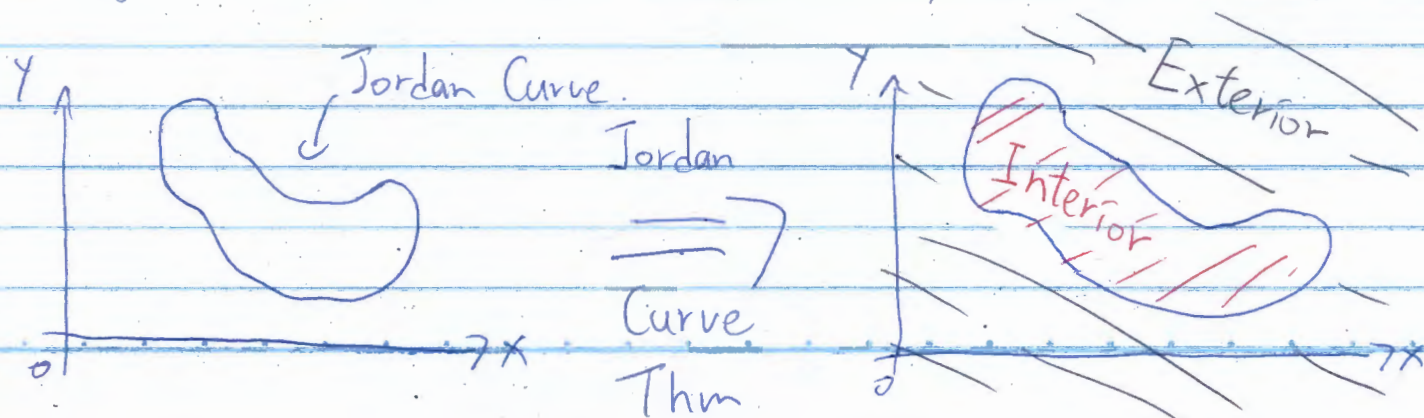 Y
Jordan Curve.
X
0
Jordan
⇒
Curve
Thm
Y
Exterior
Interior
X
0